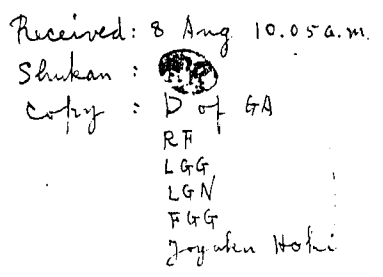 Received: 8 Aug 10.05 a.m.
Shukan :
Copy : D of GA
RF
LGG
LGN
FGG
Joyaku Hoki